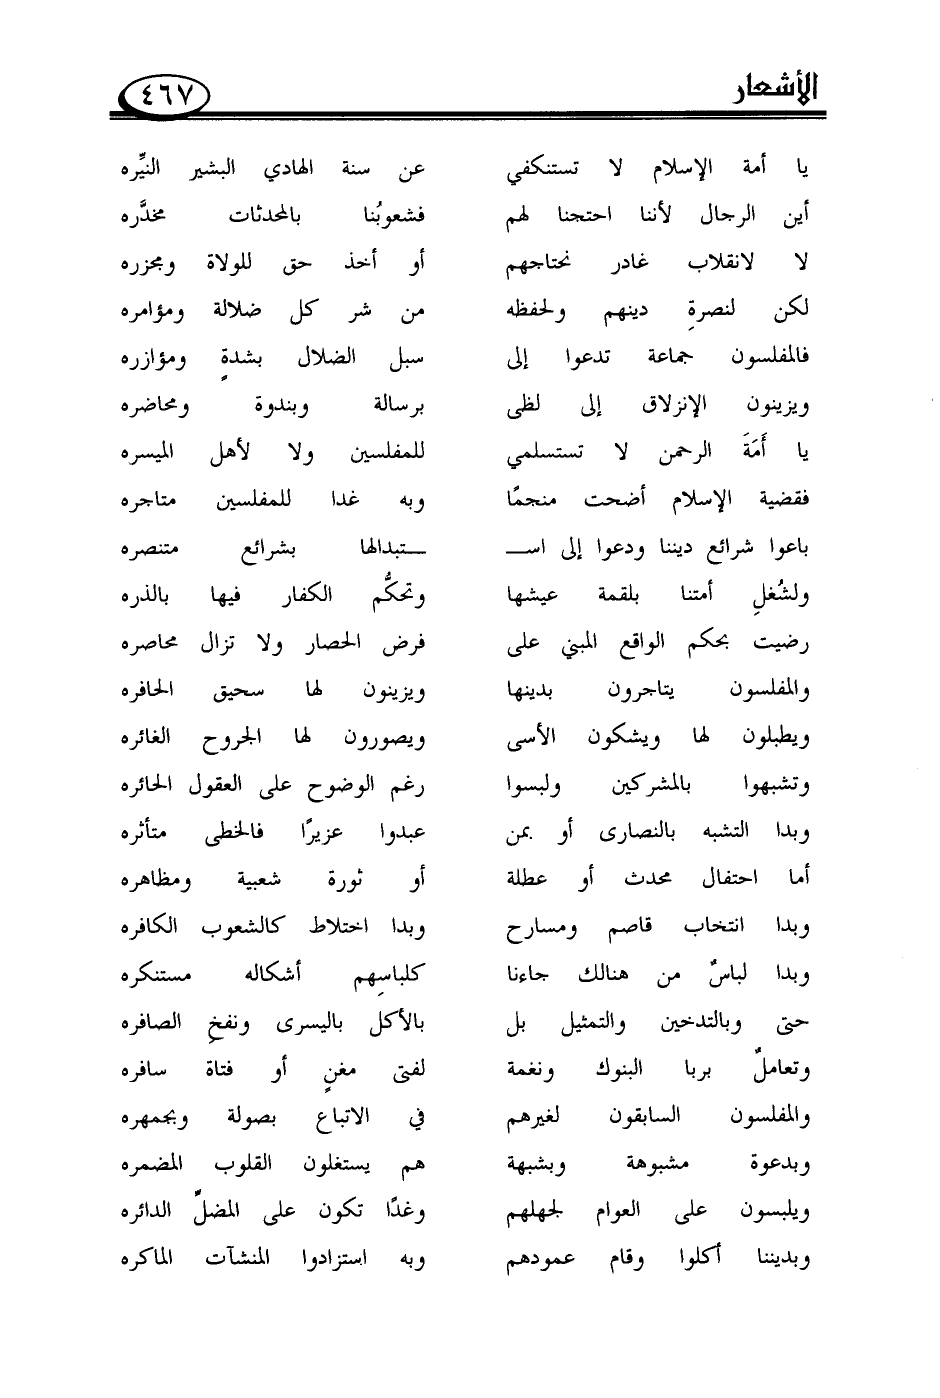 الأشعار ٤٦٧
يا أمة الإسلام لا تستنكفي عن سنة الهادي البشير النيِّره
أين الرجال لأننا احتجنا لهم فشعوبُنا بالمحدثات مخدَّره
لا لانقلاب غادر نحتاجهم أو أخذ حق للولاة ومجزره
لكن لنصرةِ دينهم ولحفظه من شر كل ضلالة ومؤامره
فالمفلسون جماعة تدعوا إلى سبل الضلال بشدةٍ ومؤازره
ويزينون الإنزلاق إلى لظى برسالة وبندوة ومحاضره
يا أَمَةَ الرحمن لا تستسلمي للمفلسين ولا لأهل الميسره
فقضية الإسلام أضحت منجمًا وبه غدا للمفلسين متاجره
باعوا شرائع ديننا ودعوا إلى اســ ــتبدالها بشرائع متنصره
ولشُغلِ أمتنا بلقمة عيشها وتحكُّم الكفار فيها بالذره
رضيت بحكم الواقع المبني على فرض الحصار ولا تزال محاصره
والمفلسون يتاجرون بدينها ويزينون لها سحيق الحافره
ويطبلون لها ويشكون الأسى ويصورون لها الجروح الغائره
وتشبهوا بالمشركين ولبسوا رغم الوضوح على العقول الحائره
وبدا التشبه بالنصارى أو بمن عبدوا عزيرًا فالخطى متأثره
أما احتفال محدث أو عطلة أو ثورة شعبية ومظاهره
وبدا انتخاب قاصم ومسارح وبدا اختلاط كالشعوب الكافره
وبدا لباسٌ من هنالك جاءنا كلباسِهم أشكاله مستنكره
حتى وبالتدخين والتمثيل بل بالأكل باليسرى ونفخِ الصافره
وتعاملٌ بربا البنوك ونغمة لفتى مغنٍ أو فتاة سافره
والمفلسون السابقون لغيرهم في الاتباع بصولة وبجمهره
وبدعوة مشبوهة وبشبهة هم يستغلون القلوب المضمره
ويلبسون على العوام لجهلهم وغدًا تكون على المضلِّ الدائره
وبديننا أكلوا وقام عمودهم وبه استزادوا المنشآت الماكره